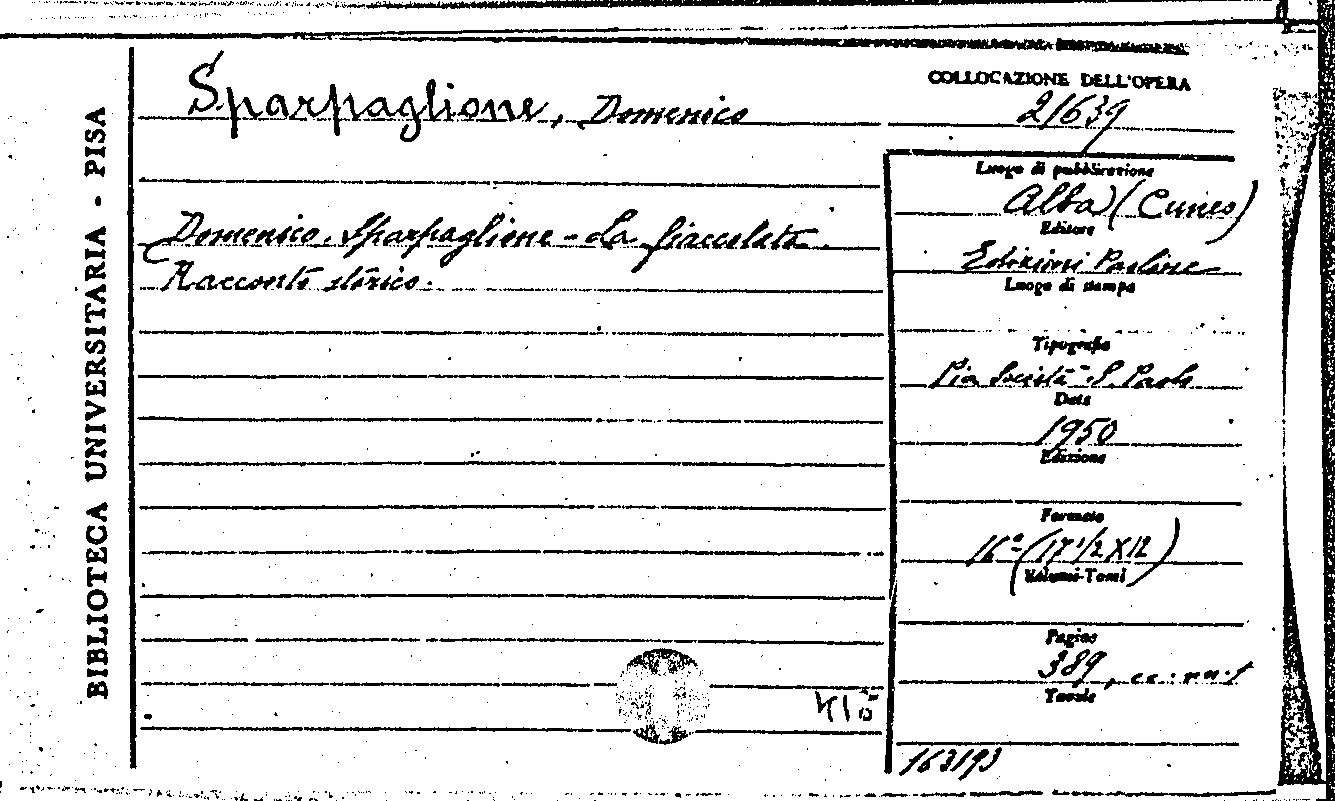 BIBLIOTECA UNIVERSITARIA - PISA
Sparpaglione, Domenico
Domenico Sparpaglione - La fiaccolata.
Racconto storico.
COLLOCAZIONE DELL'OPERA
2/639
Luogo di pubblicazione
Alba (Cuneo)
Editore
Edizioni Paoline
Luogo di stampa
Tipografia
Pia Società S. Paolo
Data
1950
Edizione
Formato
16° (17 1/2 X 12)
Volumi-Tomi
Pagine
389, cc. nn. 1
Tavole
163193